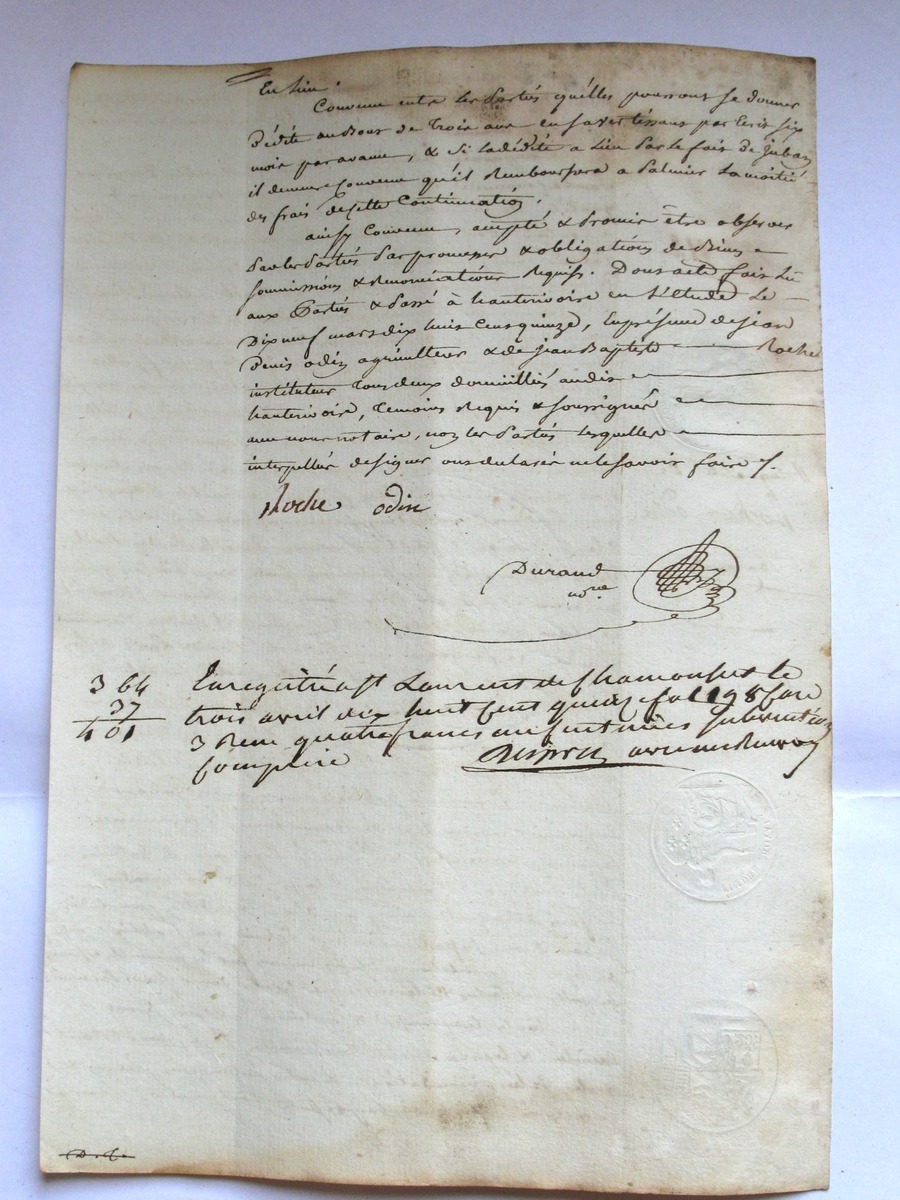 En lieu.
Convenu entre les Partés qu'elles pourront se donner
Dédite au bout de trois ans en s'avertissant par Ecrit six
mois par avance, & si ladédite a Lieu Par le fait de Juban
il demeure Convenu qu'il Remboursera a Palmier La moitié
des frais de Cette Continuation.
ainsy Convenu, accepté & Promis être observer
Par les Partés Par promesses & obligations de Biens
soumissions & Renonciations Requises. Dont acte fait Lu
aux Partés & Passé à hauterivoire en L'étude Le
Dix neuf mars dix huit Cent quinze, En présence de jean
Denis odin agriculteur & de Jean Baptiste Roche
instituteur Tous deux domicilliés audit
hauterivoire, Temoins Requis & soussignés
avec nous notaire, non les Partés Lesquelles
interpellées de signer ont déclarés ne le savoir faire
Roche odin
Durand
nore
3 64
37
4 01
Enregistré à St Laurent de Chamousset le
trois avril dix huit cent quinze fol 198
3 Reçu quatre francs un centimes Subvention
Comprise
D. C.